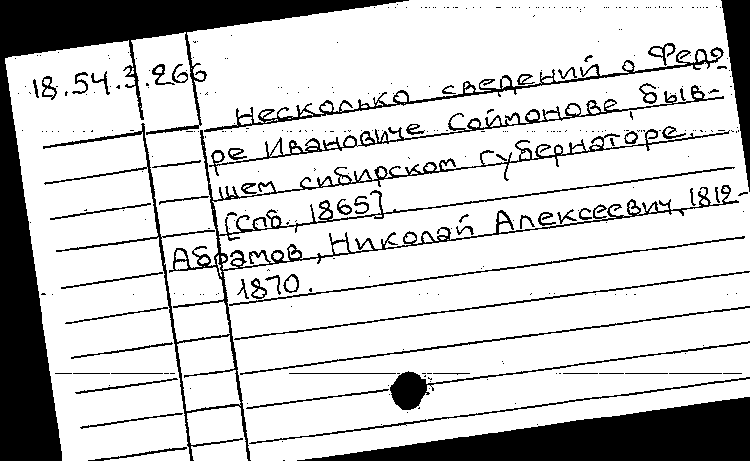 18.54.3.266
Несколько сведений о Федо-
ре Ивановиче Соймонове, быв-
шем сибирском губернаторе.
[Спб., 1865].
Абрамов, Николай Алексеевич, 1812-
1870.